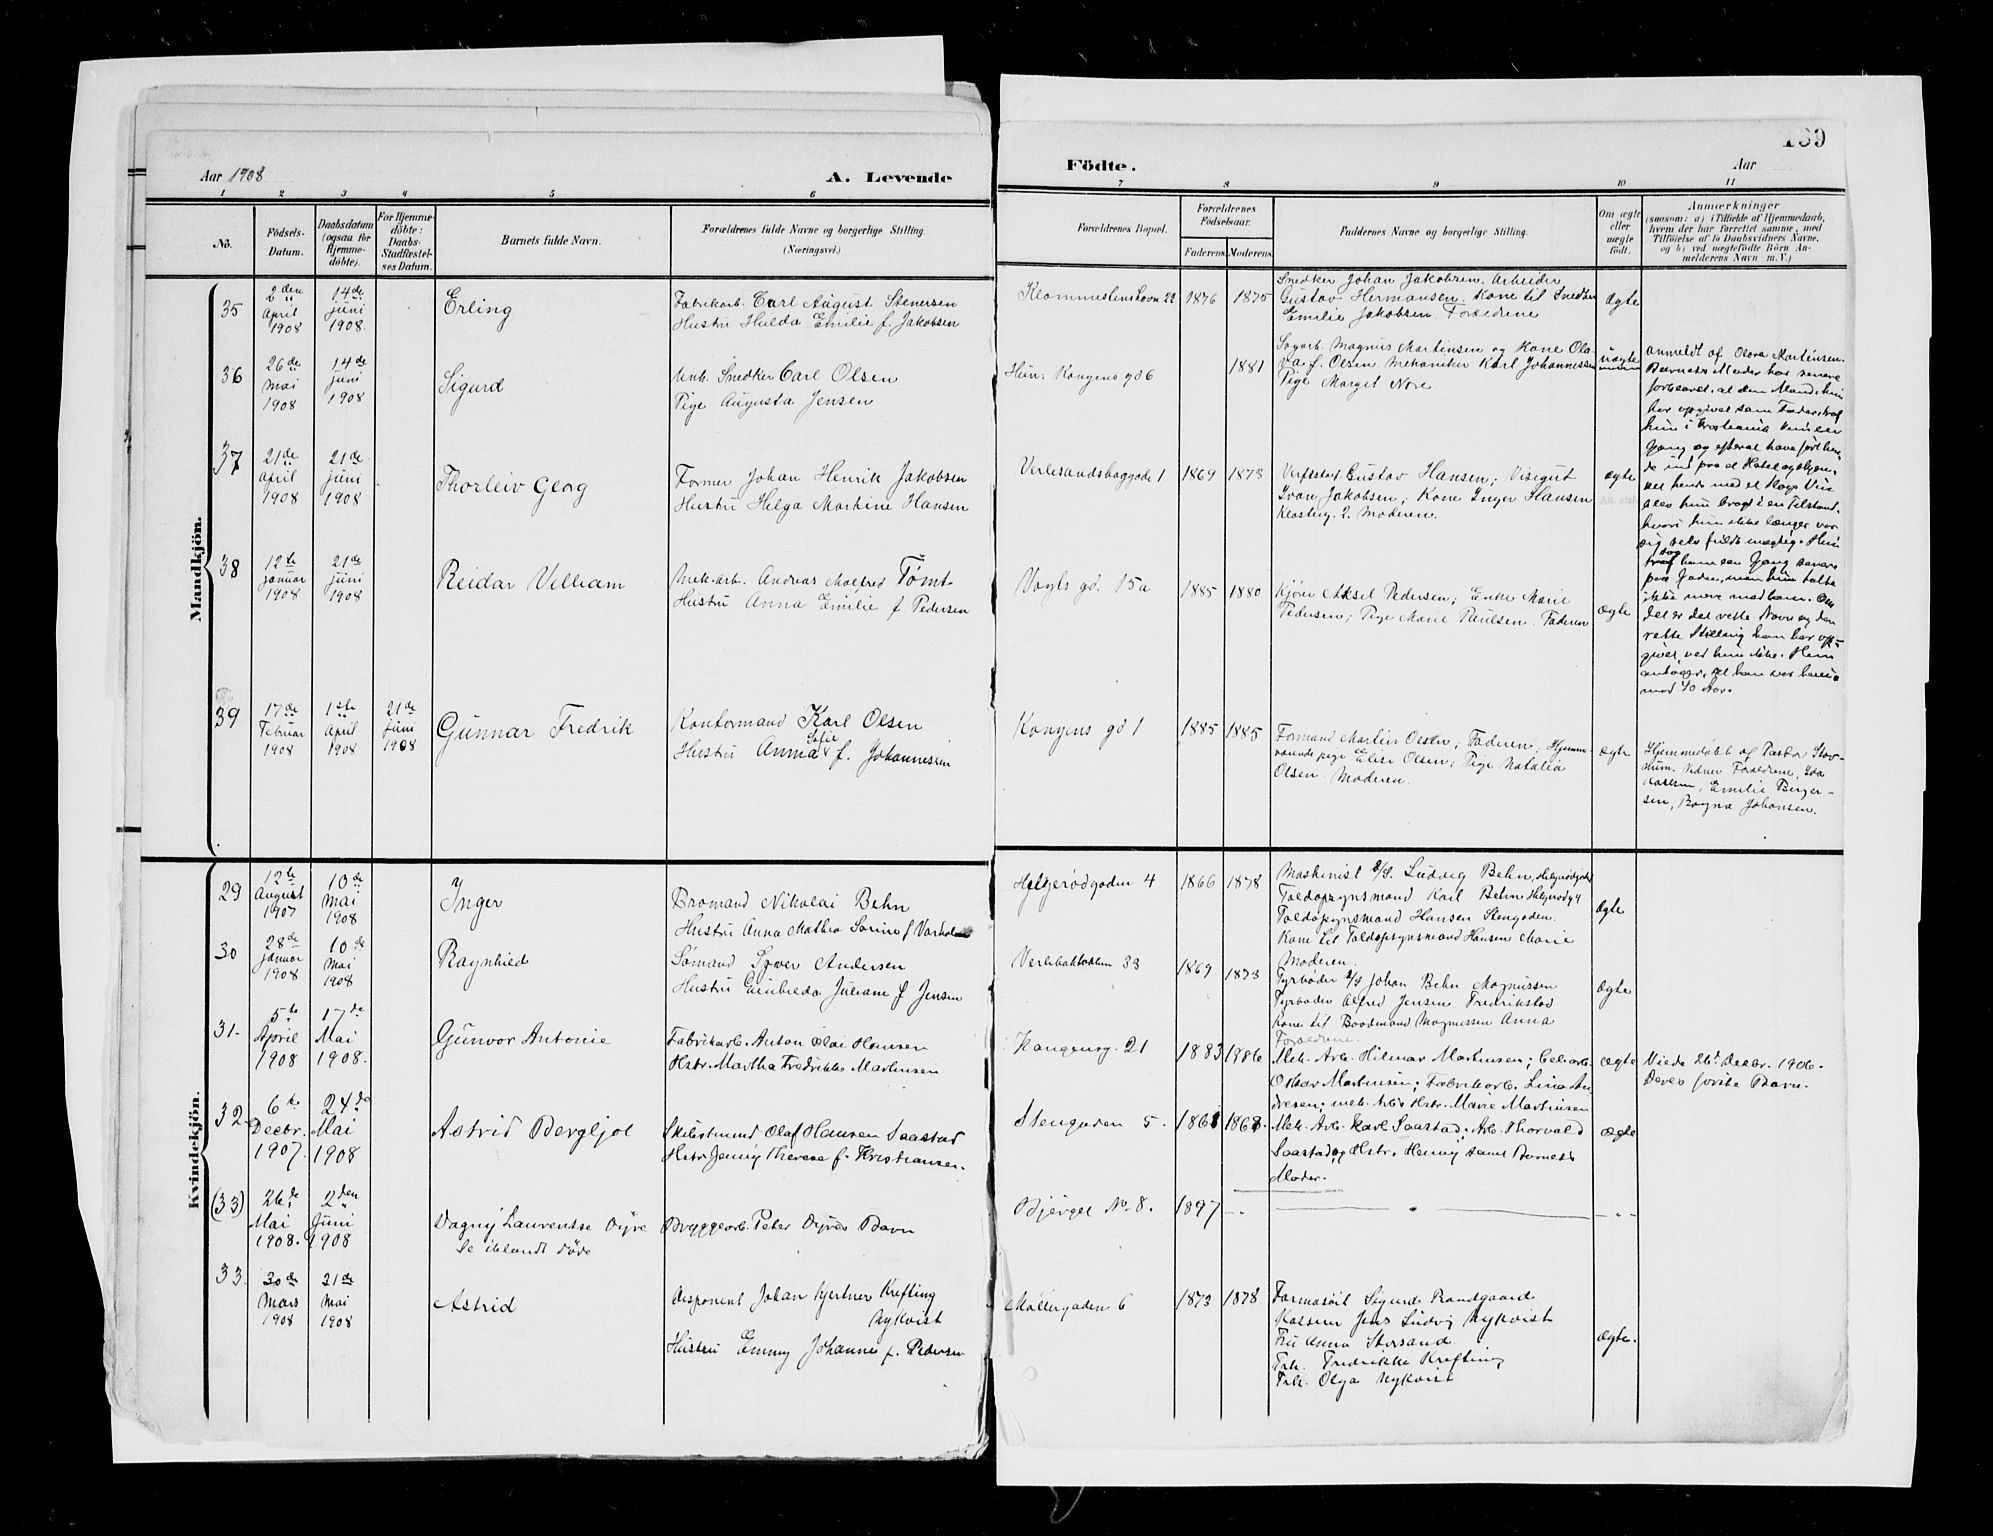 139
Aar 1908
A. Levende
Födte.
Aar
1 2 3 4 5 6 7 8 9 10 11
No.
Födsels-
Datum.
Daabsdatum
(ogsaa for
Hjemme-
döbte).
For Hjemme-
döbte:
Daabs-
Stadfæstel-
ses Datum.
Barnets fulde Navn.
Forældrenes fulde Navne og borgerlige Stilling.
(Næringsvei.)
Forældrenes Bopæl.
Forældrenes
Födselsaar.
Faderens. Moderens.
Faddernes Navne og borgerlige Stilling.
Om ægte
eller
uægte
födt.
Anmærkninger
(saasom: a) i Tilfælde af Hjemmedaab,
hvem der har forrettet samme, med
Tilföielse af to Daabsvidners Navne,
og b) ved uægtefödte Börn An-
melderens Navn m. V.)
Mandkjön.
35
2den
April
1908
14de
Juni
1908.
Erling
Fabrikarb. Carl August Stenersen
Hustru Hulda Emilie f. Jakobsen
22
1876
1875
Snedker Johan Jakobsen. Arbeider
Gustav Hermansen. Kone til Snedker
Emilie Jakobsen. Forældrene
ægte
36
26de
Mai
1908
14de
Juni
1908
Sigurd
Unk. Snedker Carl Olsen
Pige Augusta Jensen
Hun: Kongens gd 6
1881
Sagarb. Magnus Martinsen og Kone Olo-
va f. Olsen. Mekaniker Karl Johannessen
Pige Margit Nore
uægte
anmeldt af Olova Martinsen.
Barnets Moder har senere
forklaret, at den Mand, hun
har opgivet som Fader, traf
hun i Kristiania
Gang og efterat have ført hen-
de ind paa et Hotel og skjæn-
ket hende med et Slags Vin
blev hun bragt i en Tilstand,
hvori hun ikke længer var
sig selv fuldt mægtig. Hun
saa ham en Gang senere
paa Gaden, men hun talte
ikke mere med ham. Om
det er det rette Navn og den
rette Stilling han har op-
givet ved hun ikke. Hun
antager, at han var heni-
mod 40 Aar.
37
21de
April
1908
21de
Juni
1908
Thorleiv Georg
Former Johan Henrik Jakobsen
Hustru Helga Martine Hansen
Verlesandshaggade 1
1869
1873
Verftsarb. Gustav Hansen; Visegut
Ivan Jakobsen; Kone Inger Hansen
Klosterg. 2. Moderen.
ægte
38
12te
Januar
1908
21de
Juni
1908
Reidar Vilham
Mek. arb. Andreas Malfred Tømt
Hustru Anna Emilie f. Pedersen
Vogts gd. 15a
1885
1880
Kjører Aksel Pedersen; Enke Marie
Pedersen; Pige Marie Paulsen. Faderen
ægte
39
17de
Februar
1908
1ste
April
1908
21de
Juni
1908
Gunnar Fredrik
Kontormand Karl Olsen
Sofie
Hustru Anna f. Johannesen
Kongens gd 1
1885
1885
Formand Martin Olsen; Faderen; Hjemme-
værende pige Elise Olsen; Pige Natalia
Olsen. Moderen.
ægte
Hjemmedøbt af Pastor Stor-
hum. Vidner Forældrene, Ida
Karlsen, Emilie Berger-
sen, Ragna Johansen.
Kvindekjön.
29
12te
August
1907
10de
Mai
1908
Inger
Bromand Nikolai Behn
Hustru Anna Mathea Sorine f
Helgerødgaden 4
1866
1878
Maskinist Ludvig Behn, Helgerødgd
Toldopsynsmand Karl Behn Helgerødg 4
Toldopsynsmand Hansen Stengaden.
Kone til Toldopsynsmand Hansen Marie
Moderen.
ægte
30
28de
Januar
1908
10de
Mai
1908
Ragnhild
Sømand Sever Andersen
Hustru Juliane f Jensen
Verlebakken 33
1869
1873
Fyrbøder Johan Behn Magnussen
Fyrbøder Alfred Jensen Fredrikstad
Kone til Baadmand Magnussen Anna
Forældrene.
ægte
31.
5te
April
1908
17de
Mai
1908.
Gunvor Antonie
Fabrikarb. Anton Olai Hansen
Hstr. Martha Fredrikke Martinsen
Kongensg. 21
1883
1886
Mek. Arb. Hilmar Martinsen; Celarb.
Oskar Martinsen; Fabrikarb. Lina An-
dresen; mek. Arbs Hstr. Marie Martinsen
ægte
Viede 26. Decbr. 1906.
Deres første Barn.
32
6te
Decbr.
1907.
24de
Mai
1908
Astrid Bergljot
Skibstmnd Olaf Hansen Saastad
Hstr. Jenny Therese f. Kristiansen.
Stengaden 5.
1861
1867.
Mek. Arb. Karl Saastad; Arb. Thorvald
Saastad og Hstr. Henny samt Barnets
Moder.
ægte
(33)
26de
Mai
1908.
2den
Juni
1908
Dagny Laurentse Dyre
Se iblandt døde
Bryggearb. Peter Dyres Barn
Bjerget No. 8.
1897
33.
30de
Mars
1908
21de
Mai
1908
Astrid
Disponent Johan Hjertner Krefting
Nykvist
Hustru Emmy Johanne f. Pedersen
Møllergaden 6
1873
1878
Farmasöit Sigurd Randgaard
Kasserer Jens Ludvig Nykvist
Fru Anna Storsand.
Frk. Fredrikke Krefting
Frk. Olga Nykvist
ægte.